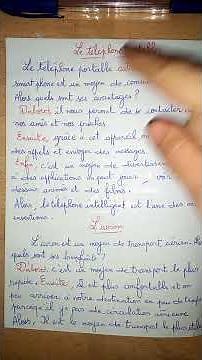 Le téléphone
Le téléphone portable
smartphone est un moyen de
Alors quels sont ses avantages ?
D'abord, il nous permet de se contacter
nos amis et nos proches
Ensuite, grâce à cet appareil
des appels et envoyer des messages.
Enfin, c'est un moyen de divertissement
d'applications on peut jouer, voir
dessins animés et des films.
Alors, le téléphone intelligent est l'une des
inventions.
L'avion
L'avion est un moyen de transport aérien.
quels sont ses bienfaits ?
D'abord, c'est un moyen de transport le plus
rapide. Ensuite, il est plus confortable et on
peu arriver à notre destination en peu de temps
parce qu'il y a pas de circulation aérienne
Alors, il est le moyen de transport le plus